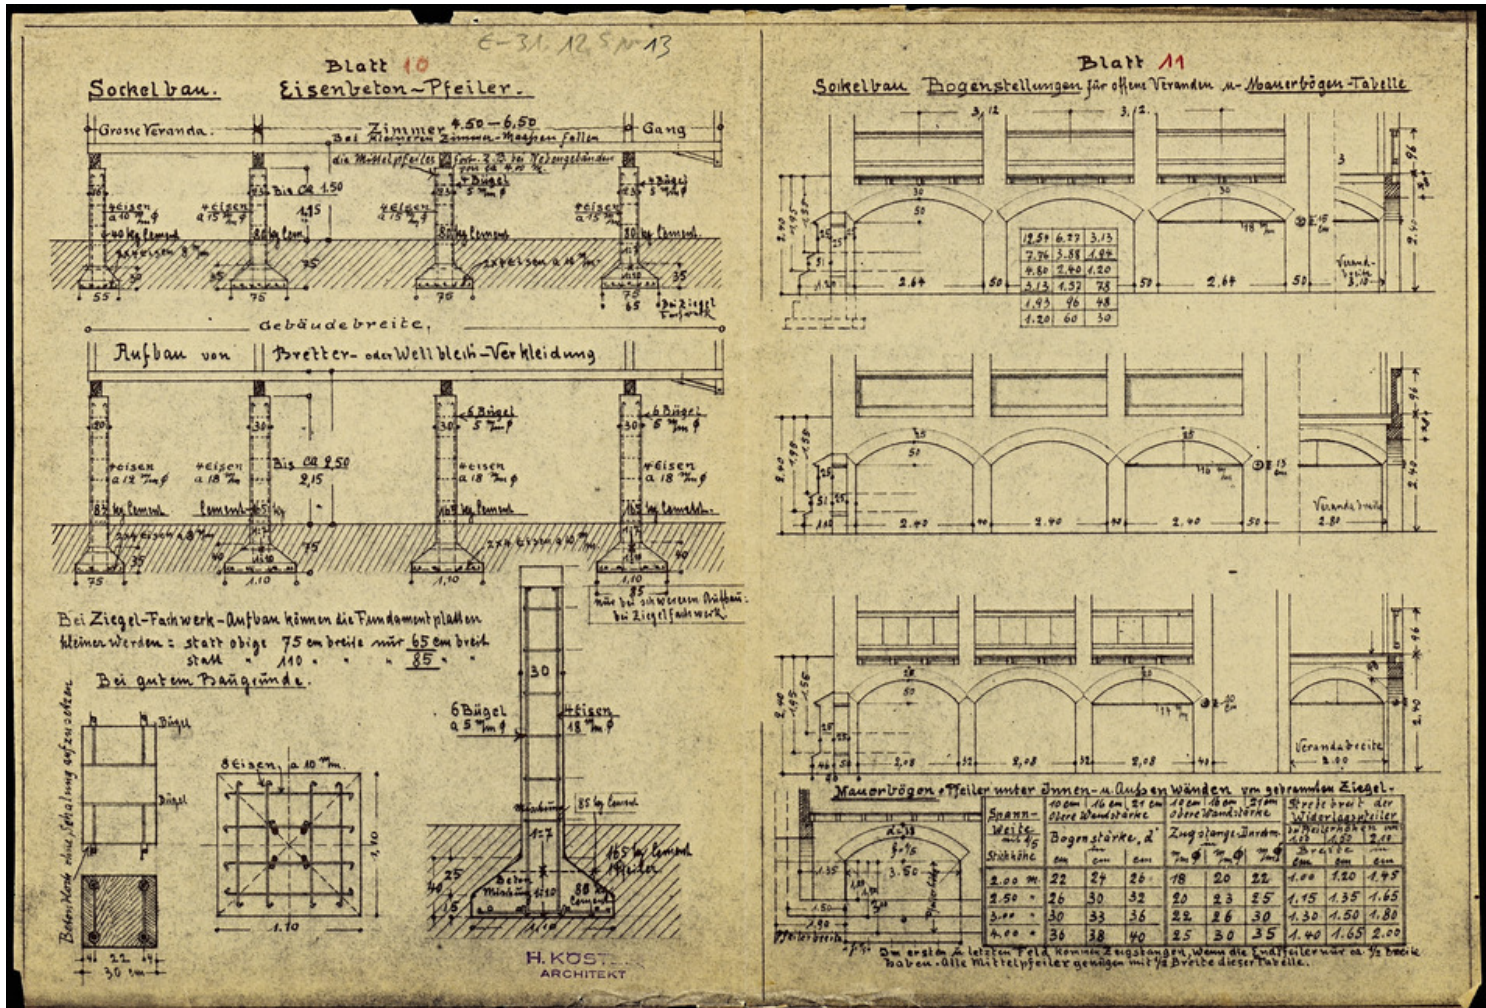 E-31. 12, 5 N 13
Blatt 10
Sockelbau. Eisenbeton-Pfeiler.
Grosse Veranda. Zimmer 4.50—6,50 Gang
Bei kleineren Zimmer-Maassen fallen
die Mittelpfeiler fort. z. B. bei Nebengebäuden
von ca 4.00 m.
4 Bügel
5 m/m φ
4 Bügel
5 m/m φ
Bis ca 1.50
1,15
4 Eisen
a 10 m/m φ
4 Eisen
a 15 m/m φ
4 Eisen
a 15 m/m φ
4 Eisen
a 15 m/m φ
40 kg Cement
80 kg Cem.
80 kg Cement
80 kg Cement.
2x4 Eisen 8 m/m
2x4 Eisen a 10 m/m
55 75 75 75
65 Bei Ziegel
Fachwerk
Gebäudebreite,
Aufbau von Bretter- oder Wellblech-Verkleidung
20 30 30 30
6 Bügel
5 m/m φ
6 Bügel
5 m/m φ
4 Eisen
a 12 m/m φ
4 Eisen
a 18 m/m φ
Bis ca 2,50
2,15
4 Eisen
a 18 m/m φ
4 Eisen
a 18 m/m φ
kg Cement
Cement 165 kg
165 kg Cement
165 kg Cement.
2x4 Eisen a 8 m/m
2x4 Eisen a 10 m/m
75 1.10 1,10 1,10
85
nur bei schwereren Aufbau:
bei Ziegelfachwerk
Bei Ziegel-Fachwerk-Aufbau können die Fundamentplatten
kleiner werden = statt obige 75 cm breite nur 65 cm breit
statt " 110 " " " 85 " "
Bei gutem Baugrunde.
Betonklotz ohne Schalung aufzusetzen
Bügel
Bügel
4 22 4
30 cm
8 Eisen, a 10 m/m.
1,10
1.10
30
6 Bügel
a 5 m/m φ
4 Eisen
18 m/m φ
Mischung
1:7
85 kg Cement
165 kg Cement
Pfeiler.
Beton
Mischung 1:10
80 kg
Cement
25
40
15
1,10
H. KÖST
ARCHITEKT
Blatt 11
Sockelbau Bogenstellungen für offene Veranden u- Mauerbögen-Tabelle
3,12 3,12.
30 30
50
18 m/m
12.54 6.27 3.13
7.76 3.88 1.94
4.80 2.40 1.20
3.13 1.57 78
1.93 96 48
1.20 60 30
2,64 50 50 2,64 50
Verand-
breite
3,10
25 25
50
16 m/m
2.40 40 2.40 40 2.40 50
Verandabreite
2.80
20 20
50
14 m/m
2,08 32 2,08 32 2,08 40
Verandabreite
2.00
Mauerbögen + Pfeiler unter Innen- u. Aussen wänden von gebrannten Ziegel-
Spann-
Weite
mit 1/5
Stichhöhe
10 cm 16 cm 21 cm
Obere Wandstärke
Bogenstärke, d'
in
cm cm cm
10 cm 16 cm 21 cm
Obere Wandstärke
Zugstange-Durchm.
m/m φ m/m φ m/m φ
Widerlagspfeiler
Breite in
cm cm cm
2.00 m. 22 24 26 18 20 22 1.00 1.20 1.45
2.50 " 26 30 32 20 23 25 1.15 1.35 1.65
3.00 " 30 33 36 22 26 30 1.30 1.50 1.80
4.00 " 36 38 40 25 30 35 1.40 1.65 2.00
3.50
1.35
1.50
1.90
Pfeilerbreite
Im ersten u letzten Feld kommen Zugstangen, wenn die Endpfeiler nur ca. 1/2 Breite
haben. Alle Mittelpfeiler genügen mit 1/2 Breite dieser Tabelle.